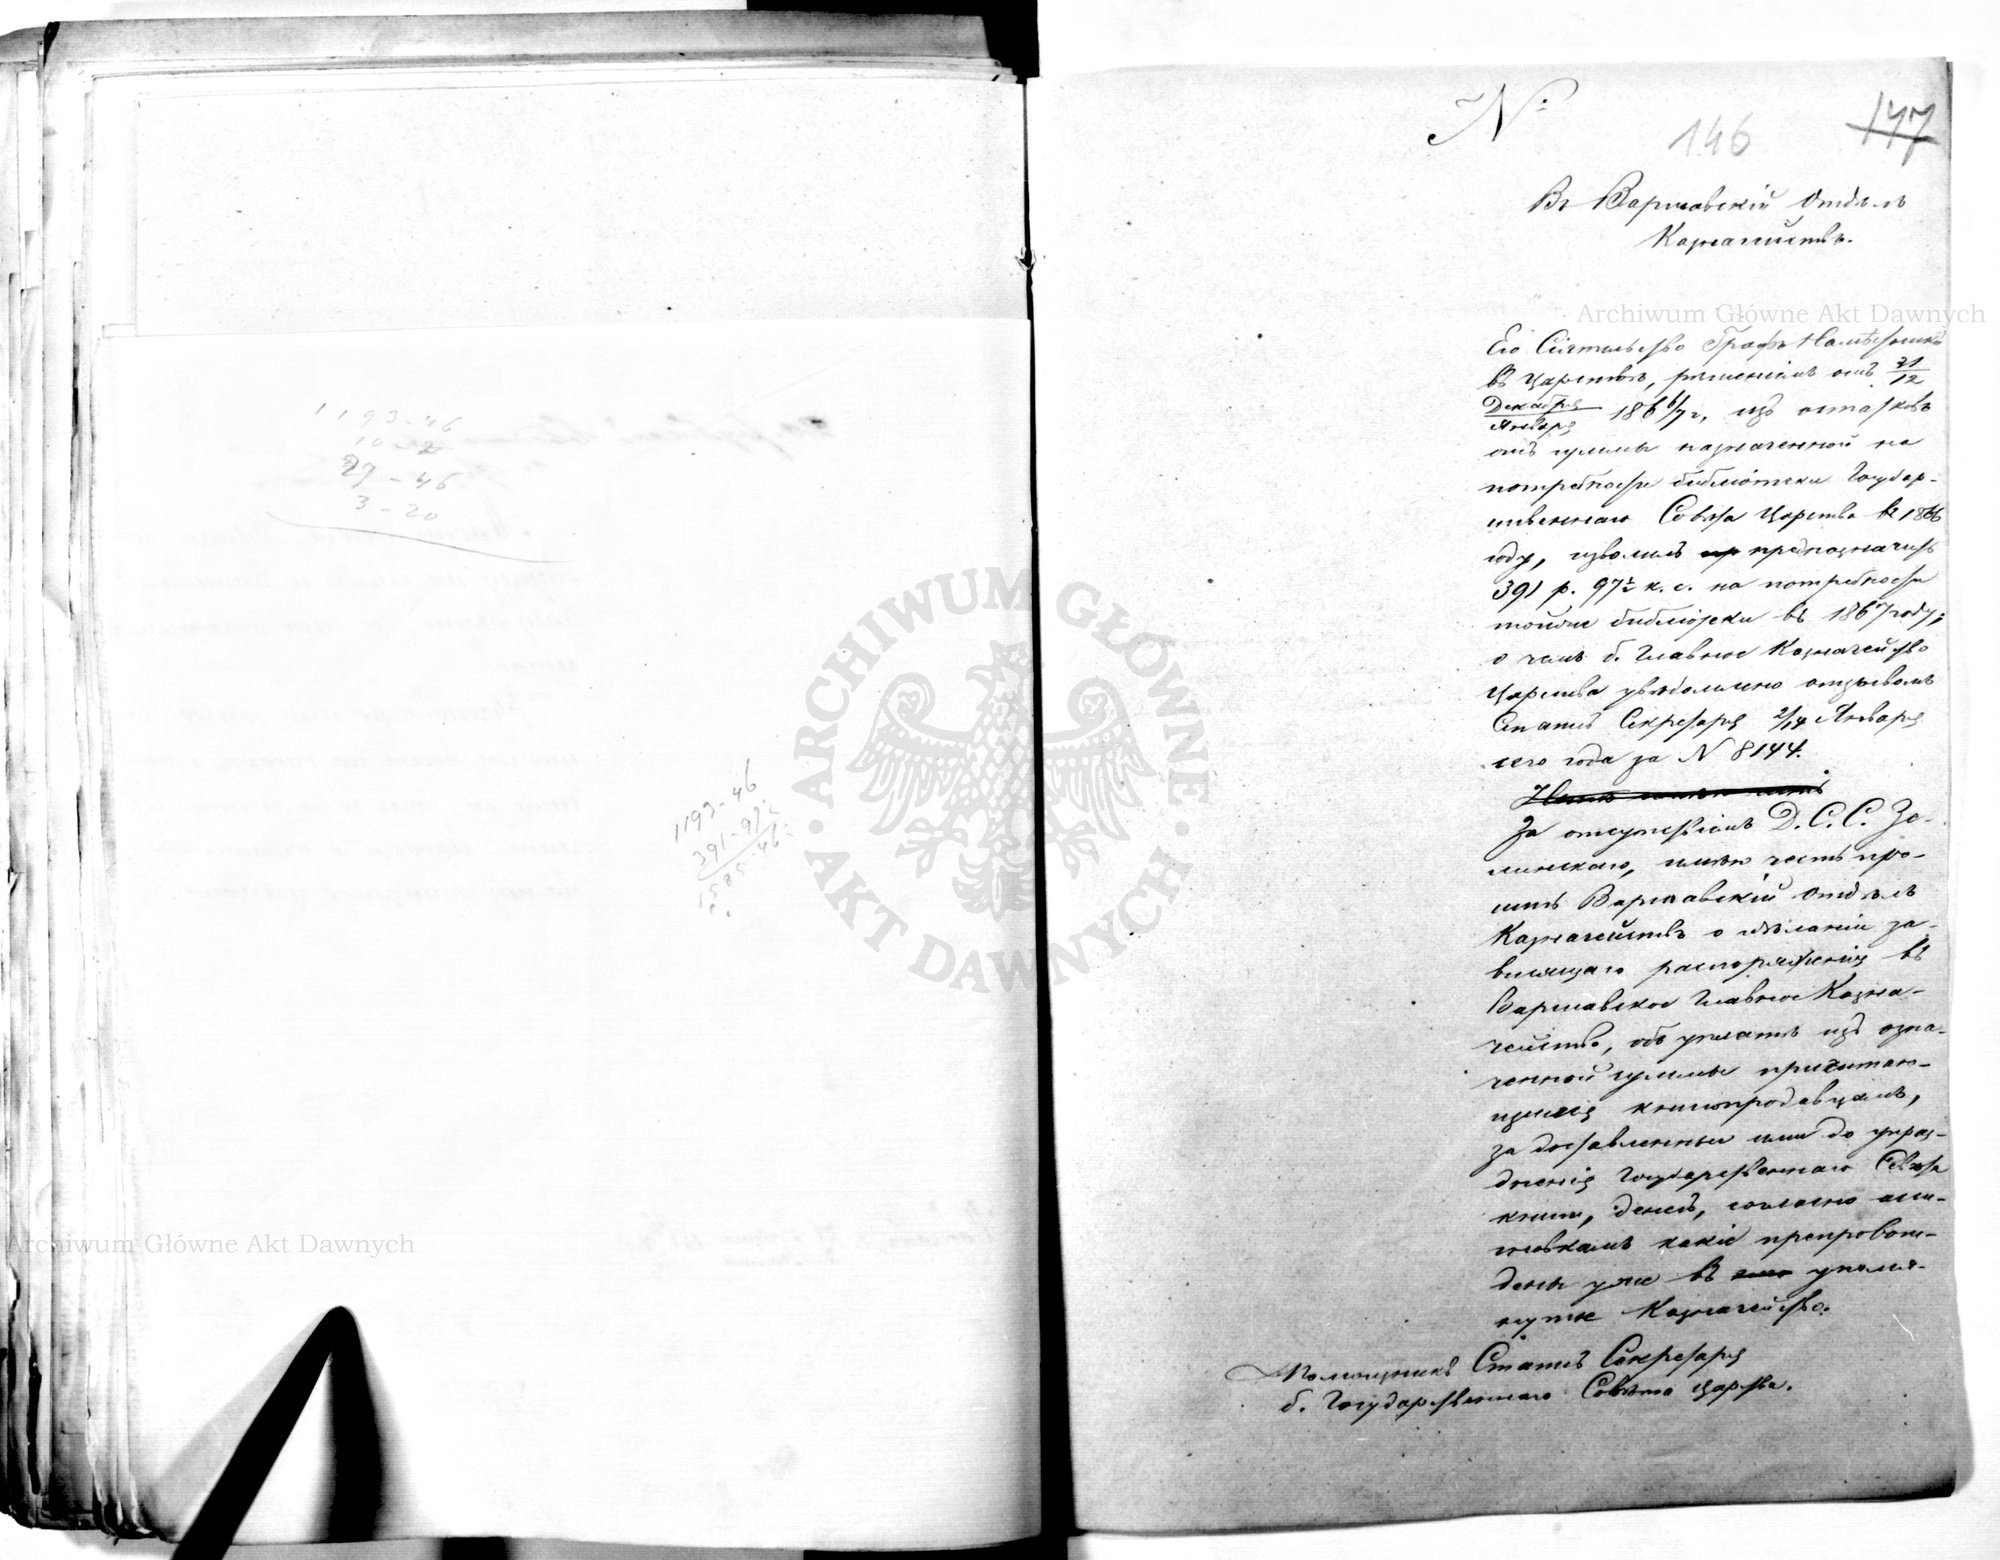 1193-46
29-46
3-20
1193-46
391-97½
1585-46
№
146
147
Въ Варшавскій Отдѣлъ
Казначействъ.
Его Сіятельство Графъ Намѣстникъ
въ Царствѣ, рѣшеніемъ отъ 31/12
Декабря/Января 1866/7 г., изъ остатковъ
отъ суммы назначенной на
потребности библіотеки Государ-
ственнаго Совѣта Царства въ 1866
году, изволилъ предназначить
391 р. 97½ к. с. на потребности
тойже библіотеки въ 1867 году;
о чемъ б. Главное Казначейство
Царства увѣдомлено отзывомъ
Статсъ Секретаря 2/14 Января
сего года за N 8144.
За отсутствіемъ Д.С.С. Зе-
линскаго, имѣю честь про-
сить Варшавскій Отдѣлъ
Казначействъ о сдѣланіи за-
висящаго распоряженія въ
Варшавское Главное Казна-
чейство, объ уплатѣ изъ озна-
ченной суммы причитаю-
щихся книгопродавцамъ,
за доставленныя ими до упраз-
дненія Государственнаго Совѣта
книги, денегъ, согласно асси-
гновкамъ какіе препровож-
дены уже въ упомя-
нутое Казначейство.
Помощникъ Статсъ Секретаря
б. Государственнаго Совѣта Царства.
Archiwum Główne Akt Dawnych
Archiwum Główne Akt Dawnych
ARCHIWUM GŁÓWNE
AKT DAWNYCH